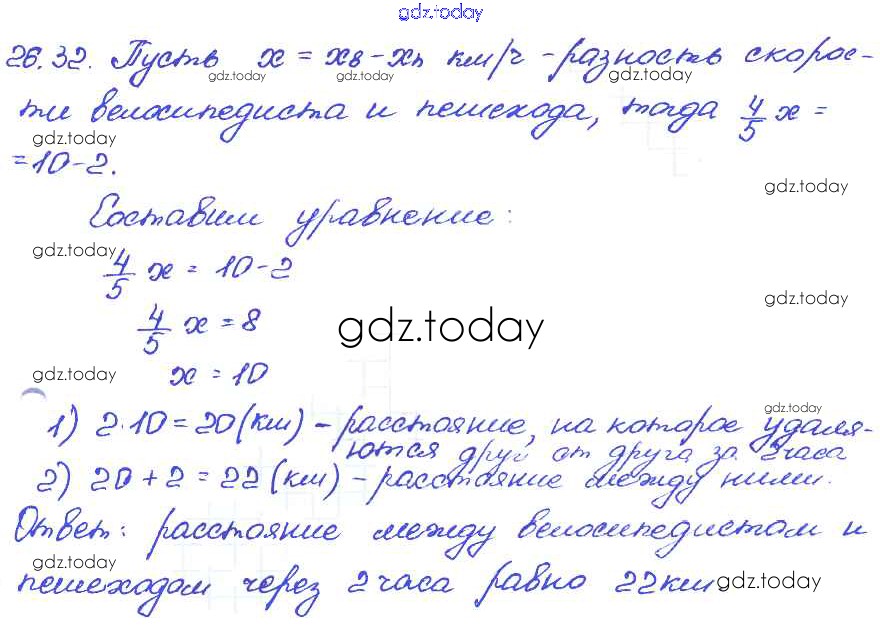 gdz.today
26.32. Пусть x = xв - xп км/ч - разность скорос-
gdz.today gdz.today
ти велосипедиста и пешехода, тогда 4/5 x =
gdz.today
= 10-2.
gdz.today
Составим уравнение:
gdz.today
4/5 x = 10-2
gdz.today
4/5 x = 8
gdz.today
gdz.today
x = 10
gdz.today
1) 2·10 = 20 (км) - расстояние, на которое удаля-
ются друг от друга за 2 часа
2) 20 + 2 = 22 (км) - расстояние между ними.
Ответ: расстояние между велосипедистом и
gdz.today
пешеходом через 2 часа равно 22 км
gdz.today